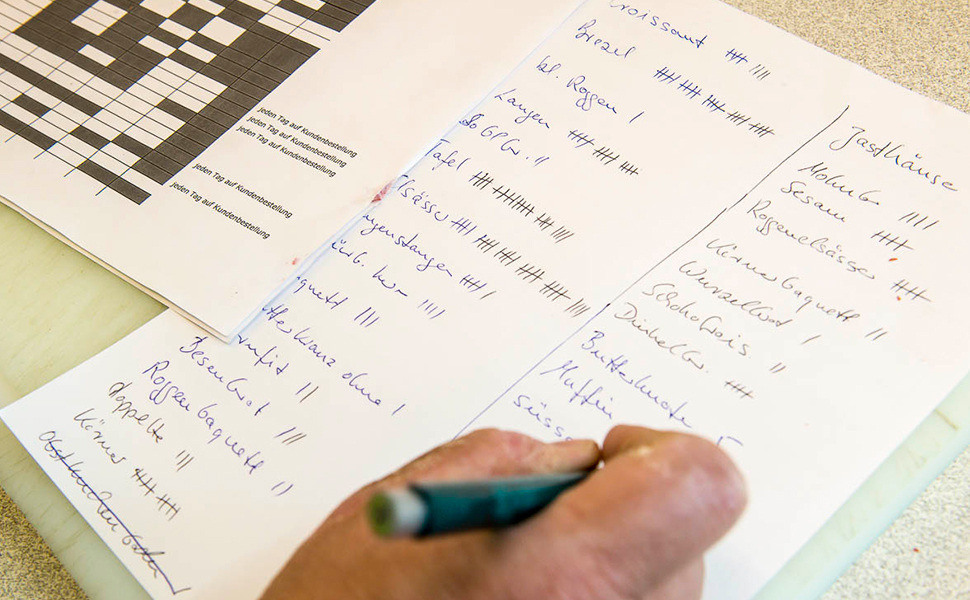 jeden Tag auf Kundenbestellung
jeden Tag auf Kundenbestellung
jeden Tag auf Kundenbestellung
jeden Tag auf Kundenbestellung
jeden Tag auf Kundenbestellung
roissant
Brezel
kl. Roggen
Langen
Tafel
lsässer
ngenstangen
quett
tterkranz ohne
Besenbrot
Roggenbaquett
doppelte
Körner
Gasthäuse
Mohnb.
Sesam
Roggenelsässer
Körnerbaquett
Wurzelbrot
Schokocrois
Dinkelbr.
Butterknoten
Muffin
süsse